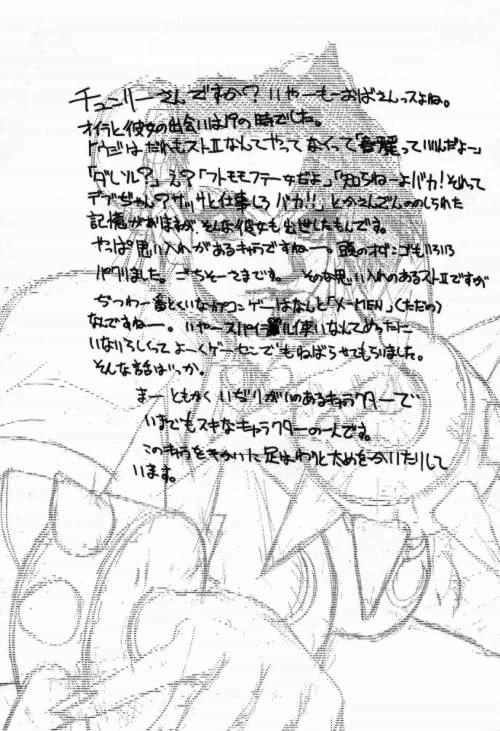 チュンリーさんですか？いやーもーおばさんっスよね。
オイラと彼女の出会いは19の時でした。
トウジはだれもストⅡなんてやってなくって「春麗っていいんだよー」
「ダレソレ？」え？「フトモモフテー女だよ」「知らねーよバカ！それって
デブじゃん？サッサと仕事しろバカ!!」とかさんざんののしられた
記憶がありますが、そんな彼女も出世したもんです。
やっぱ思い入れがあるキャラですねー。頭のオダンゴもいろいろ
パクリました。ごちそーさまです。そのな思い入れのあるストⅡですが
じつわー番とくいなカプコンゲーはなんと「X-MEN」(ただの)
なんですねー。いやースパイラル使いなんてめったに
いないらしくってよーくゲーセンでもねばらせてもらいました。
そんな話はいっか。
まーともかくいぢりがいのあるキャラクターで
いまでもスキなキャラクターの一人です。
このキャラをきっかけに足はわりと太めをかいたりして
います。